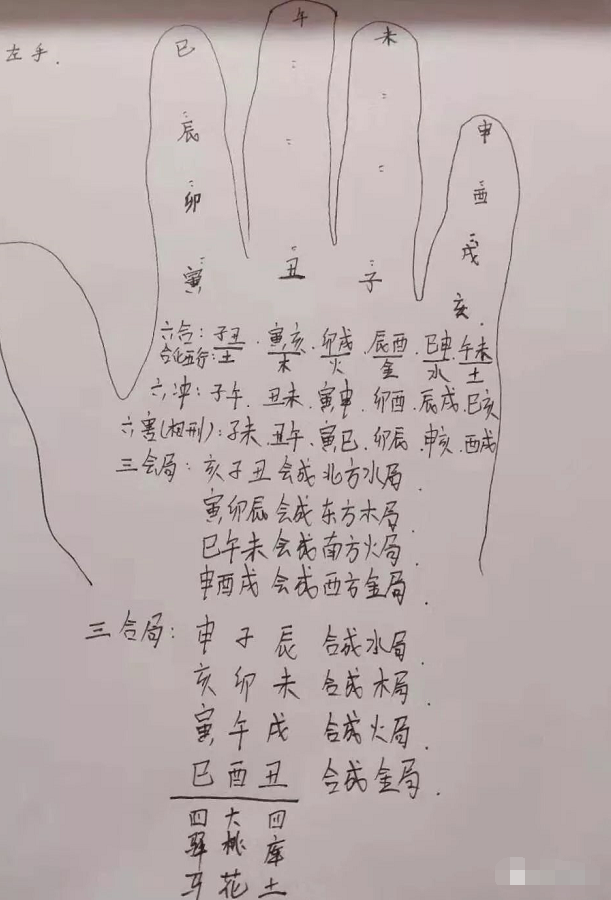 左手.
巳 午 未
辰 申
卯 酉
寅 丑 子 戌
亥
六合: 子丑 . 寅亥 . 卯戌 . 辰酉 . 巳申 . 午未
合化五行: 土 木 火 金 水 土
六冲: 子午 . 丑未 . 寅申 . 卯酉 . 辰戌 . 巳亥
六害(相刑): 子未 . 丑午 . 寅巳 . 卯辰 . 申亥 . 酉戌
三会局: 亥子丑 会成 北方水局 .
寅卯辰 会成 东方木局 .
巳午未 会成 南方火局 .
申酉戌 会成 西方金局 .
三合局: 申 子 辰 合成 水局 .
亥 卯 未 合成 木局 .
寅 午 戌 合成 火局 .
巳 酉 丑 合成 金局 .
四 大 四
驿 桃 库
马 花 土